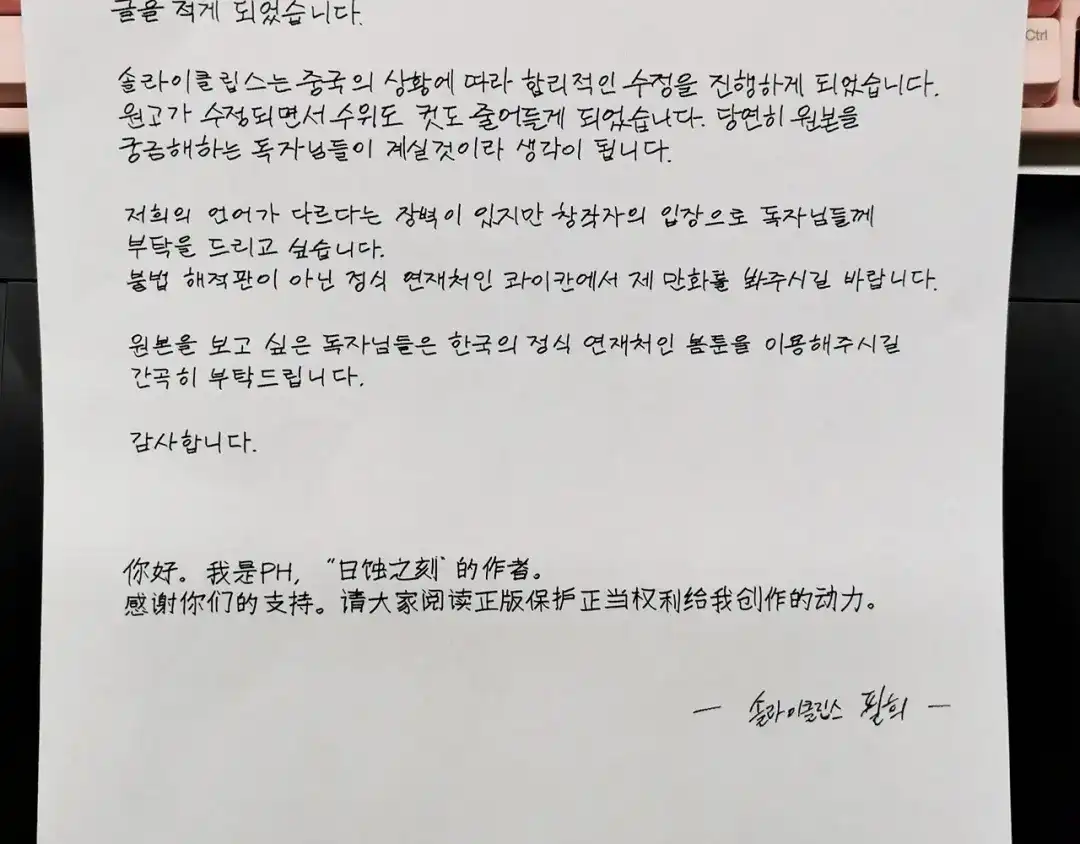 글을 적게 되었습니다.
솔라이클립스는 중국의 상황에 따라 합리적인 수정을 진행하게 되었습니다.
원고가 수정되면서 수위도 컷도 줄어들게 되었습니다. 당연히 원본을
궁금해하는 독자님들이 계실것이라 생각이 됩니다.
저희의 언어가 다르다는 장벽이 있지만 창작자의 입장으로 독자님들께
부탁을 드리고 싶습니다.
불법 해적판이 아닌 정식 연재처인 콰이칸에서 제 만화를 봐주시길 바랍니다.
원본을 보고 싶은 독자님들은 한국의 정식 연재처인 봄툰을 이용해주시길
간곡히 부탁드립니다.
감사합니다.
你好。我是PH, "日蚀之刻"的作者。
感谢你们的支持。请大家阅读正版保护正当权利给我创作的动力。
— 솔라이클립스 필희 —
Ctrl